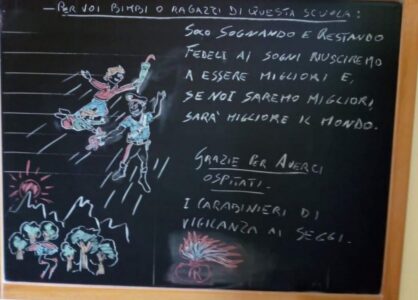 - PER VOI BIMBI O RAGAZZI DI QUESTA SCUOLA:
SOLO SOGNANDO E RESTANDO
FEDELI AI SOGNI RIUSCIREMO
A ESSERE MIGLIORI E,
SE NOI SAREMO MIGLIORI,
SARA' MIGLIORE IL MONDO.
GRAZIE PER AVERCI
OSPITATI.
I CARABINIERI DI
VIGILANZA AI SEGGI.